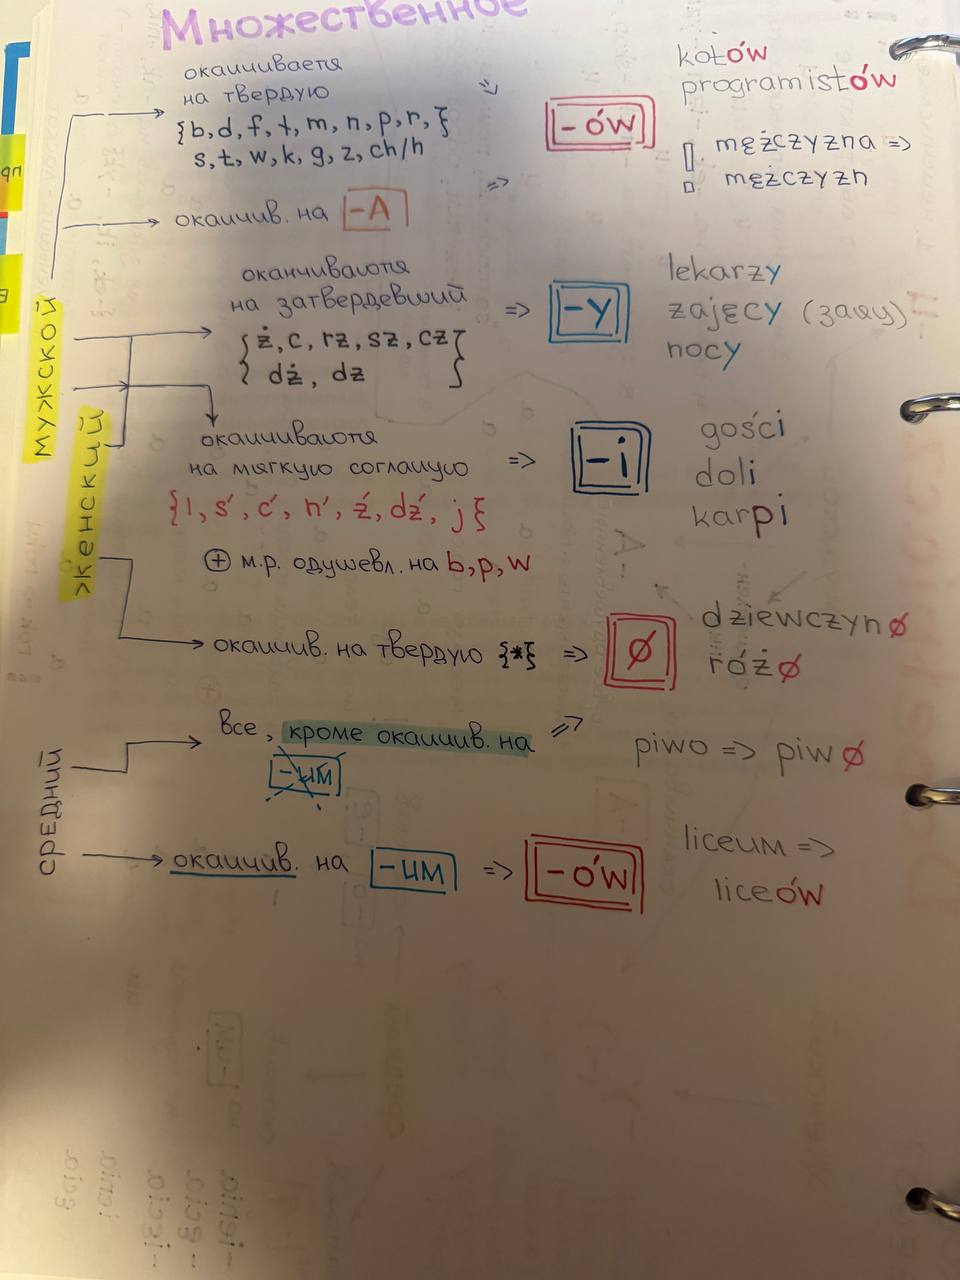 Множественное
оканчивается
на твердую
{b, d, f, ł, m, n, p, r, }
s, t, w, k, g, z, ch/h
=>
- ów
kotów
programistów
! mężczyzna =>
mężczyzn
оканчив. на -A
=>
мужской
женский
оканчиваются
на затвердевший
{ż, c, rz, sz, cz
dż, dz}
=> -y
lekarzy
zajęcy (зайцы)
nocy
оканчиваются
на мягкую согласную
{l, ś, ć, ń, ź, dź, j}
+ м.р. одушевл. на b, p, w
=> -i
gości
doli
karpi
оканчив. на твердую {*} => ø
dziewczynø
różø
средний
Все, кроме оканчив. на =>
-um
piwo => piwø
оканчив. на -um => -ów
liceum =>
liceów